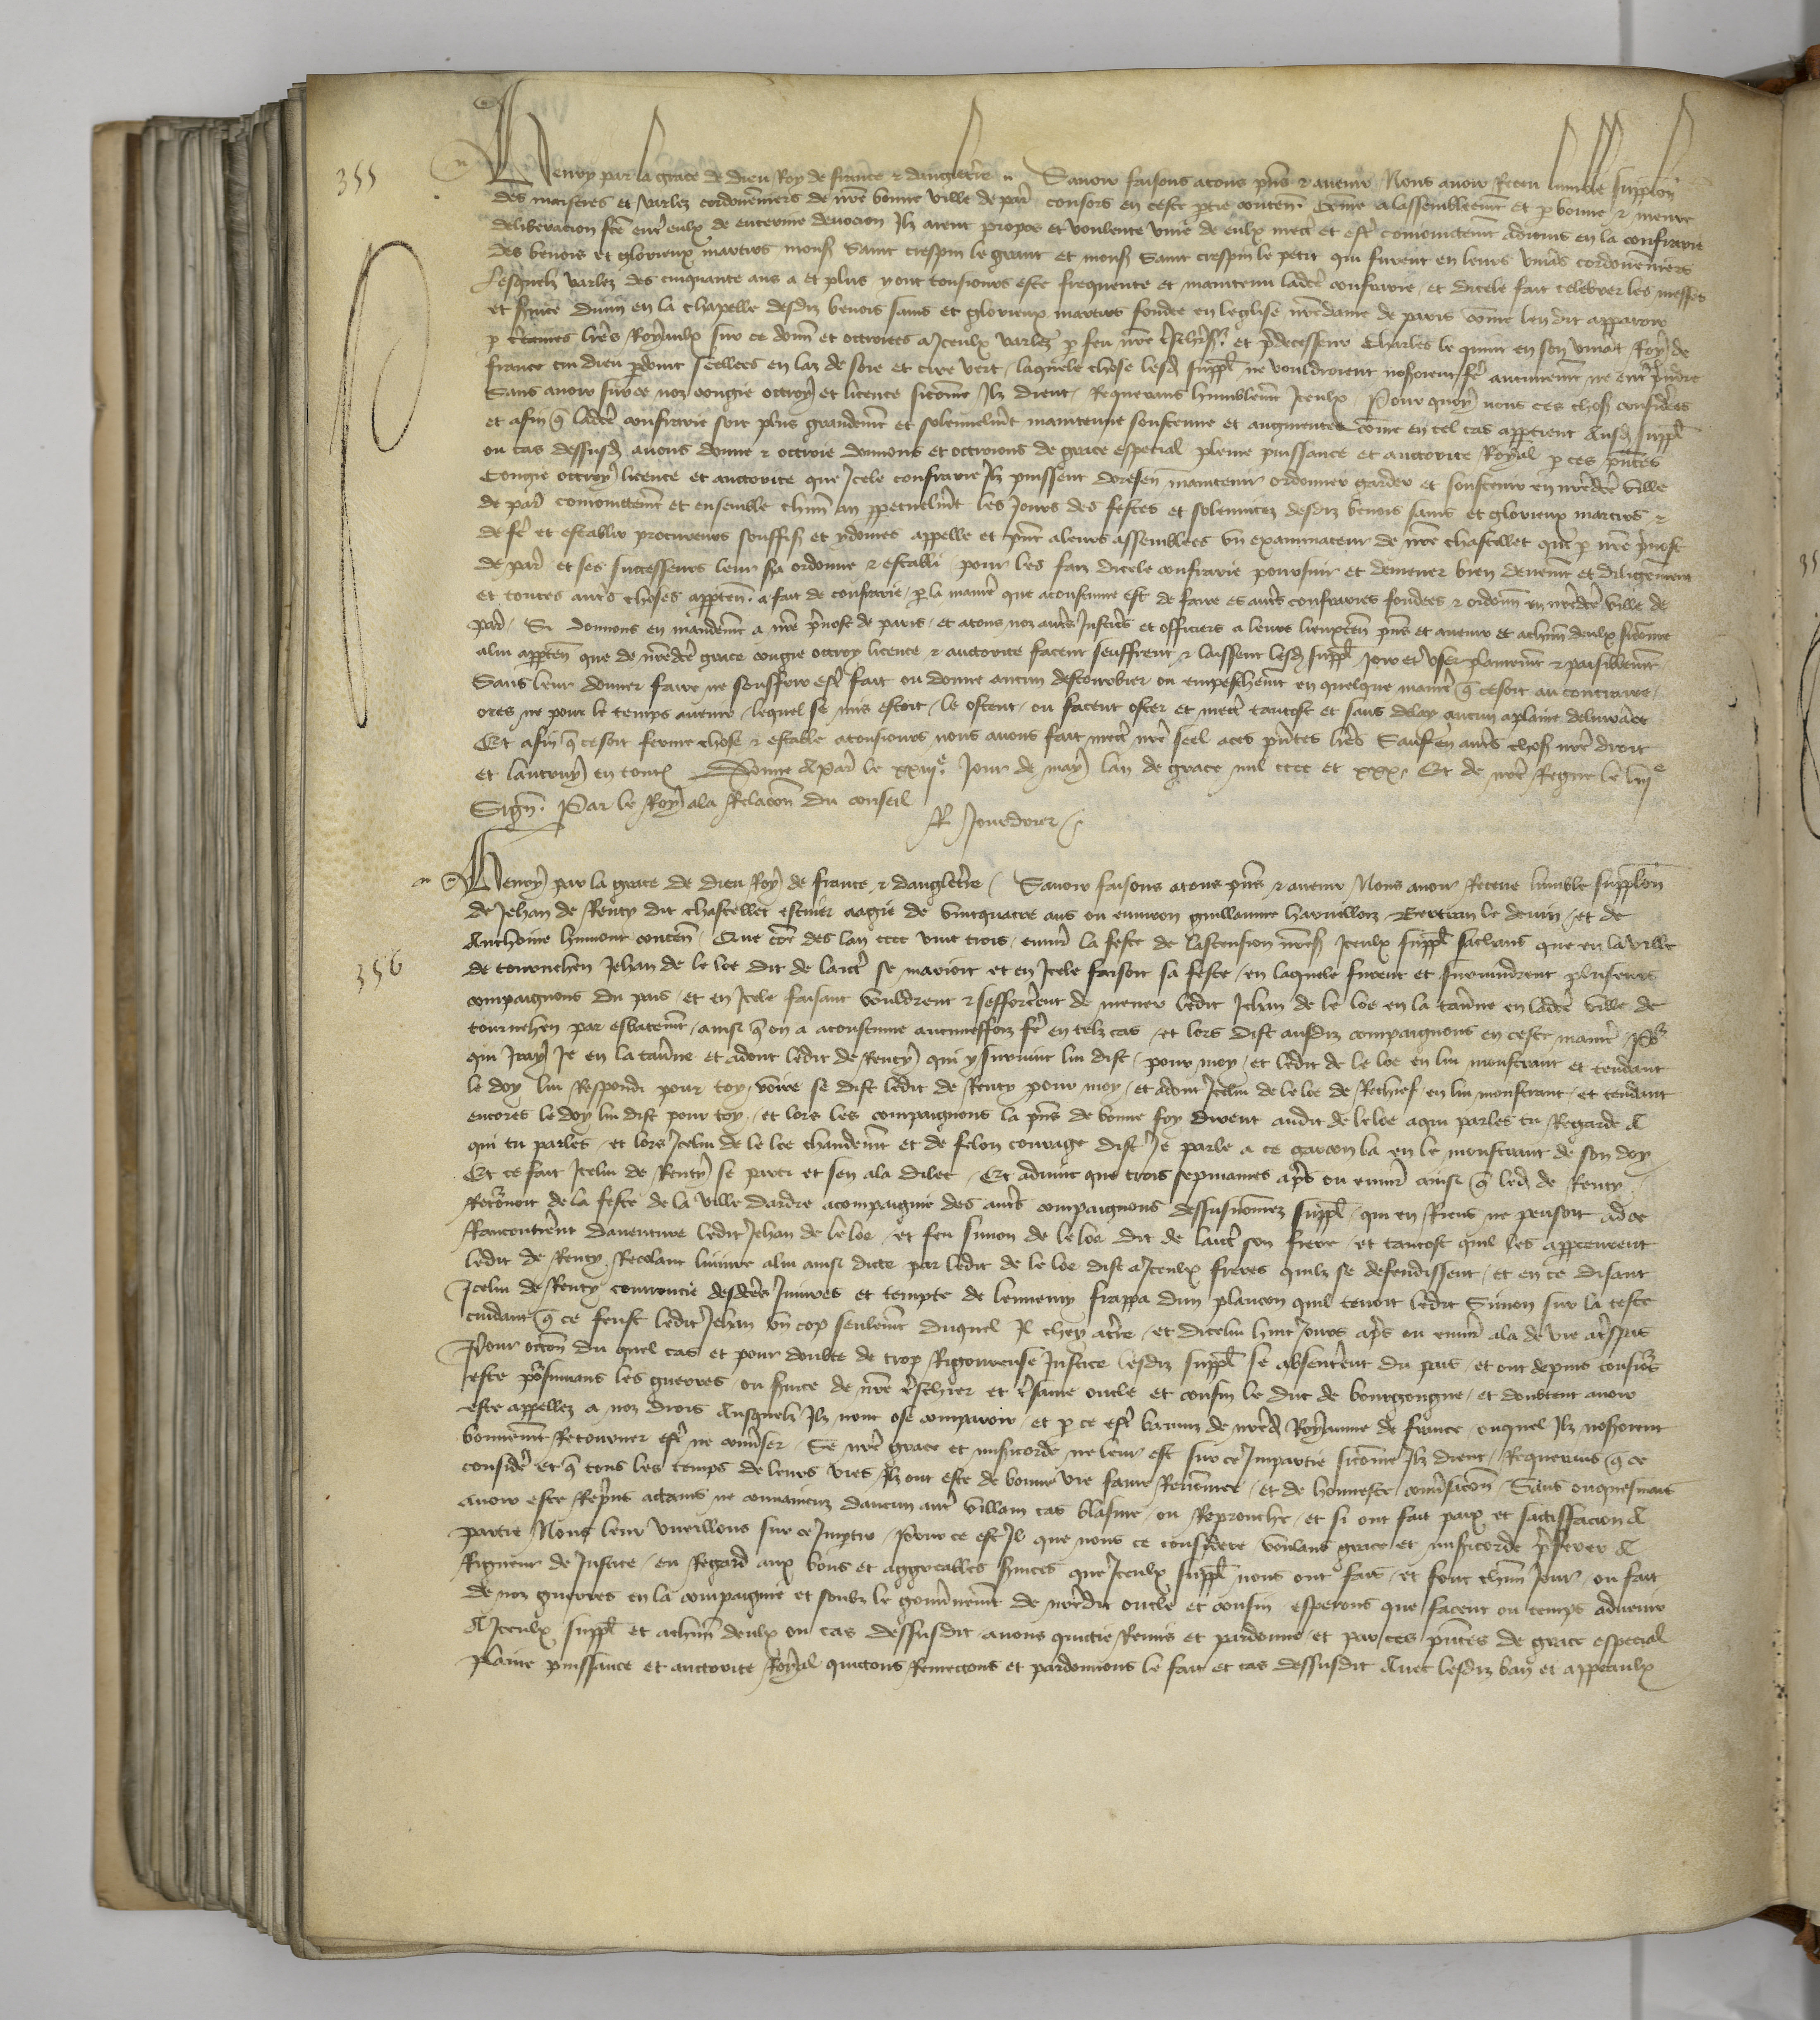 355
Henry par la grace de dieu Roy de france & dangleterre Savoir faisons a tous pns & avenir Nous avoir Receu lumble supplicon
des maistres et varlez cordouenniers de nre bonne ville de par consors en ceste ptie conten. Come a lassembleemt et p bonne & meure
deliberacion fte entr eulx de enterine devocion Ilz aient propose et voulente unie de eulx mectr et estr conioinctemt adiouins en la confrarie
des benois et glorieux martirs mons saint crespin le grant et mons saint crespin le petit qui furent en leurs vivans cordouenniers
Lesquelz varlez des cinquante ans a et plus y ont tousiours este frequente et maintenu ladicte confrarie et dicele fait celebrer les messes
et svice divin en la chapelle desdiz benois sains et glorieux martirs fondee en leglise nredame de paris come len dit apparoir
p ctaines lres Royaulx sur ce donn et octroiees a Iceulx varlez p feu nre et pdecesseur Charles le quint en son vivat Roy de
france cui dieu pdoint scellees en laz de soie et cire vert laquele chose lesd suppl ne vouldroient noseroient fe aucunemt ne entrpndre
Sans avoir sur ce noz congie octroy et licence sicome Ilz dient Requerans humblemt Iceulx Pour quoy nous ces chos considrees
et afin q ladicte confrarie soit plus grandemt et solennelmt maintenue soustenue et augmentee come en tel cas apptient Ausd suppl
ou cas dessusd avons donne & octroie donnons et octroions de grace especial pleine puissance et auctorite Royal p ces pntes
Congie octroy licence et auctorite que Icele confrarie Ilz puissent doresen maintenir ordonner garder et soustenir en nredicte ville
de par conioinctemt et ensemble chun an ppetuelmt les Jours des festes et solennitez desdiz benois sains et glorieux martirs &
de fe et establir procureurs souffis et ydoines appelle et pnt a leurs assemblees un examinateur de nre chastellet qui p nre pvost
de par et ses successeurs leur sa ordonne & establi pour les faiz dicele confrarie poursuir et demener bien deuemt et diligemment
et toutes autrs choses appten. a fait de confrarie p la manie que acoustume est de faire es autrs confraries fondees & ordonn en nredicte ville de
par Si donnons en mandemt a nre pvost de paris et a tous noz autrs Justics et officiers a leurs lieuxten pns et avenir et a chun deulx sicome
a lui apptien que de nredicte grace congie octroy licence & auctorite facent seuffrent & laissent lesd suppl Joir et user plainemt & paisiblemt
Sans leur donner faire ne souffrir estr fait ou donne aucun destourbier ou empeschemt en quelque manie q ce soit au contraire
ores ne pour le temps avenir lequel se mis estoit le ostent ou facent oster et mectr tantost et sans delay aucun a plaine delivrace
Et afin q ce soit ferme chose & estable a tousiours nous avons fait mectr nre seel a ces pntes lres Sauf en autrs chos nre droit
et lautruy en toutes Donne A Par le xxiiie Jour de may lan de grace mil cccc et xxx Et de nre Regne le viiie
Sign. Par le Roy a la Relacon du conseil
R Jouedoier
Henry par la grace de dieu Roy de france & dangleterre Savoir faisons a tous pns & avenir Nous avoir Receue lumble supplicon
de Jehan de Renty dit chastellet escuier aagie de vintquatre ans ou environ guillaume Bertran le devin et de
Anthoine humont conten. Que come des lan cccc vint trois envir la feste de lascension nres Iceulx suppl sachans que en la ville
356
de tournehen Jehan de le loe dit de se marioit et en Icele faisoit sa feste en laquele furent et survindrent plusieurs
compaignons du pais et en Icele faisant vouldrent & sefforcrent de mener ledit Jehan de le loe en la tavne en ladicte ville de
tournehen par esbatemt ainsi q on a acoustume aucuneffoiz fe en telz cas et lors dist ausdiz compaignons en ceste manie
qui Iray Je en la tavne et adont ledit de Renty qui y survint lui dist pour moy et ledit de le loe en lui monstrant et tendant
le doy lui Respondi pour toy voire se dist ledit de Renty pour moy et adont Icelui de le loe de Rechief en lui monstrant et tendant
encores le doy lui dist pour toy et lors les compaignons la pns de bonne foy dirent audit de le loe a qui parles tu Regarde A
qui tu parles et lors Icelui de le loe chaudemt et de felon courage dist Je parle a ce garcon la en le monstrant de son doy
Et ce fait Icelui de Renty se parti et sen ala dilec Et advint que trois sepmaines aps ou envir ainsi q led de Renty
Retornoit de la feste de la ville dardre acompaignie des autrs compaignons dessusnomez suppl qui en Riens ne pensoit ad ce
Rencontrrent daventure ledit Jehan de le loe et feu simon de le loe dit de son frere et tantost quil les appceurent
ledit de Renty Recolant liniure a lui ainsi dicte par ledit de le loe dist a Iceulx freres quilz se defendissent et en ce disant
Icelui de Renty courroucie desdictes Iniures et tempte de lennemy frappa dun plancon quil tenoit ledit Simon sur la teste
cuidant q ce feust ledit Jehan un cop seulemt duquel Il chey a tre et dicelui huit Jours aps ou envir ala de vie a trspas
Pour occon du quel cas et pour doubte de trop Rigoureuse Justice lesdiz suppl se absentrent du pais et ont depuis tousiors
este psuivans les guerres ou svice de nre trschier et trsame oncle et cousin le duc de bourgongne et doubtent avoir
este appellez a noz drois Ausquelz Ilz nont ose comparoir et p ce estr baniz de nred Royaume de france ouquel Ilz noseroient
bonnemt Retourner estr ne convser Se nre grace et misicorde ne leur est sur ce Impartie sicome Ilz dient Requerans q ce
considre et q tous les temps de leurs vies Ilz ont este de bonne vie fame Renomee et de honneste convsacon Sans onquesmais
avoir este Reprins actains ne convaincuz daucun autr villain cas blasme ou Reprouche et si ont fait paix et satisffacion A
partie Nous leur vueillons sur ce Impartir Pour ce est Il que nous ce considere voulans grace et misicorde pferer A
Rigueur de Justice en Regard aux bons et aggreables svices que Iceulx suppl nous ont fait et font chun Jour ou fait
de noz guerres en la compaignie et soubz le gouvnemt de nredit oncle et cousin esperons que facent ou temps advenir
A Iceulx suppl et a chun deulx ou cas dessusdit avons quictie Remis et pardonne et par ces pntes de grace especial
plaine puissance et auctorite Royal quictons Remectons et pardonnons le fait et cas dessusdit Avec lesdiz ban et appeaulx